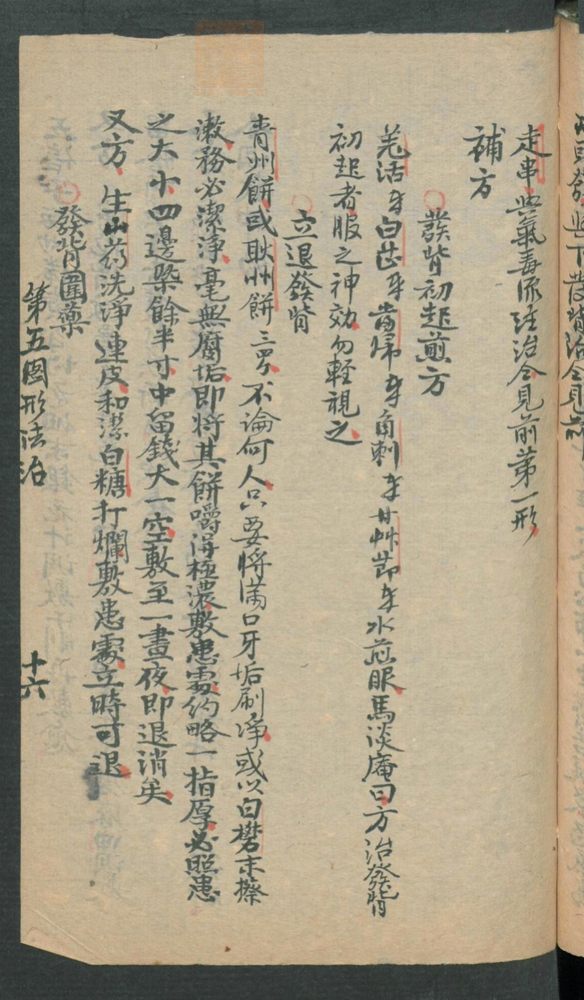 走串與氣毒流注治合見前第一形
補方
發背初起煎方
羌活 白芷 當歸 角刺 甘艸節 水煎服馬淡庵曰方治發背
初起者服之神効勿輕視之
立退發背
青州餅或耿州餅三四 不論何人只要將滿口牙垢刷淨或以白礬末擦
漱務必潔淨毫無腐垢即將其餅嚼得極濃敷患處約略一指厚必照患
之大小四邊槩餘半寸中留錢大一空敷至一晝夜即退消矣
又方 生山药洗淨連皮和潔白糖打爛敷患處立時可退
發背圍藥
第五圖形法治 十六